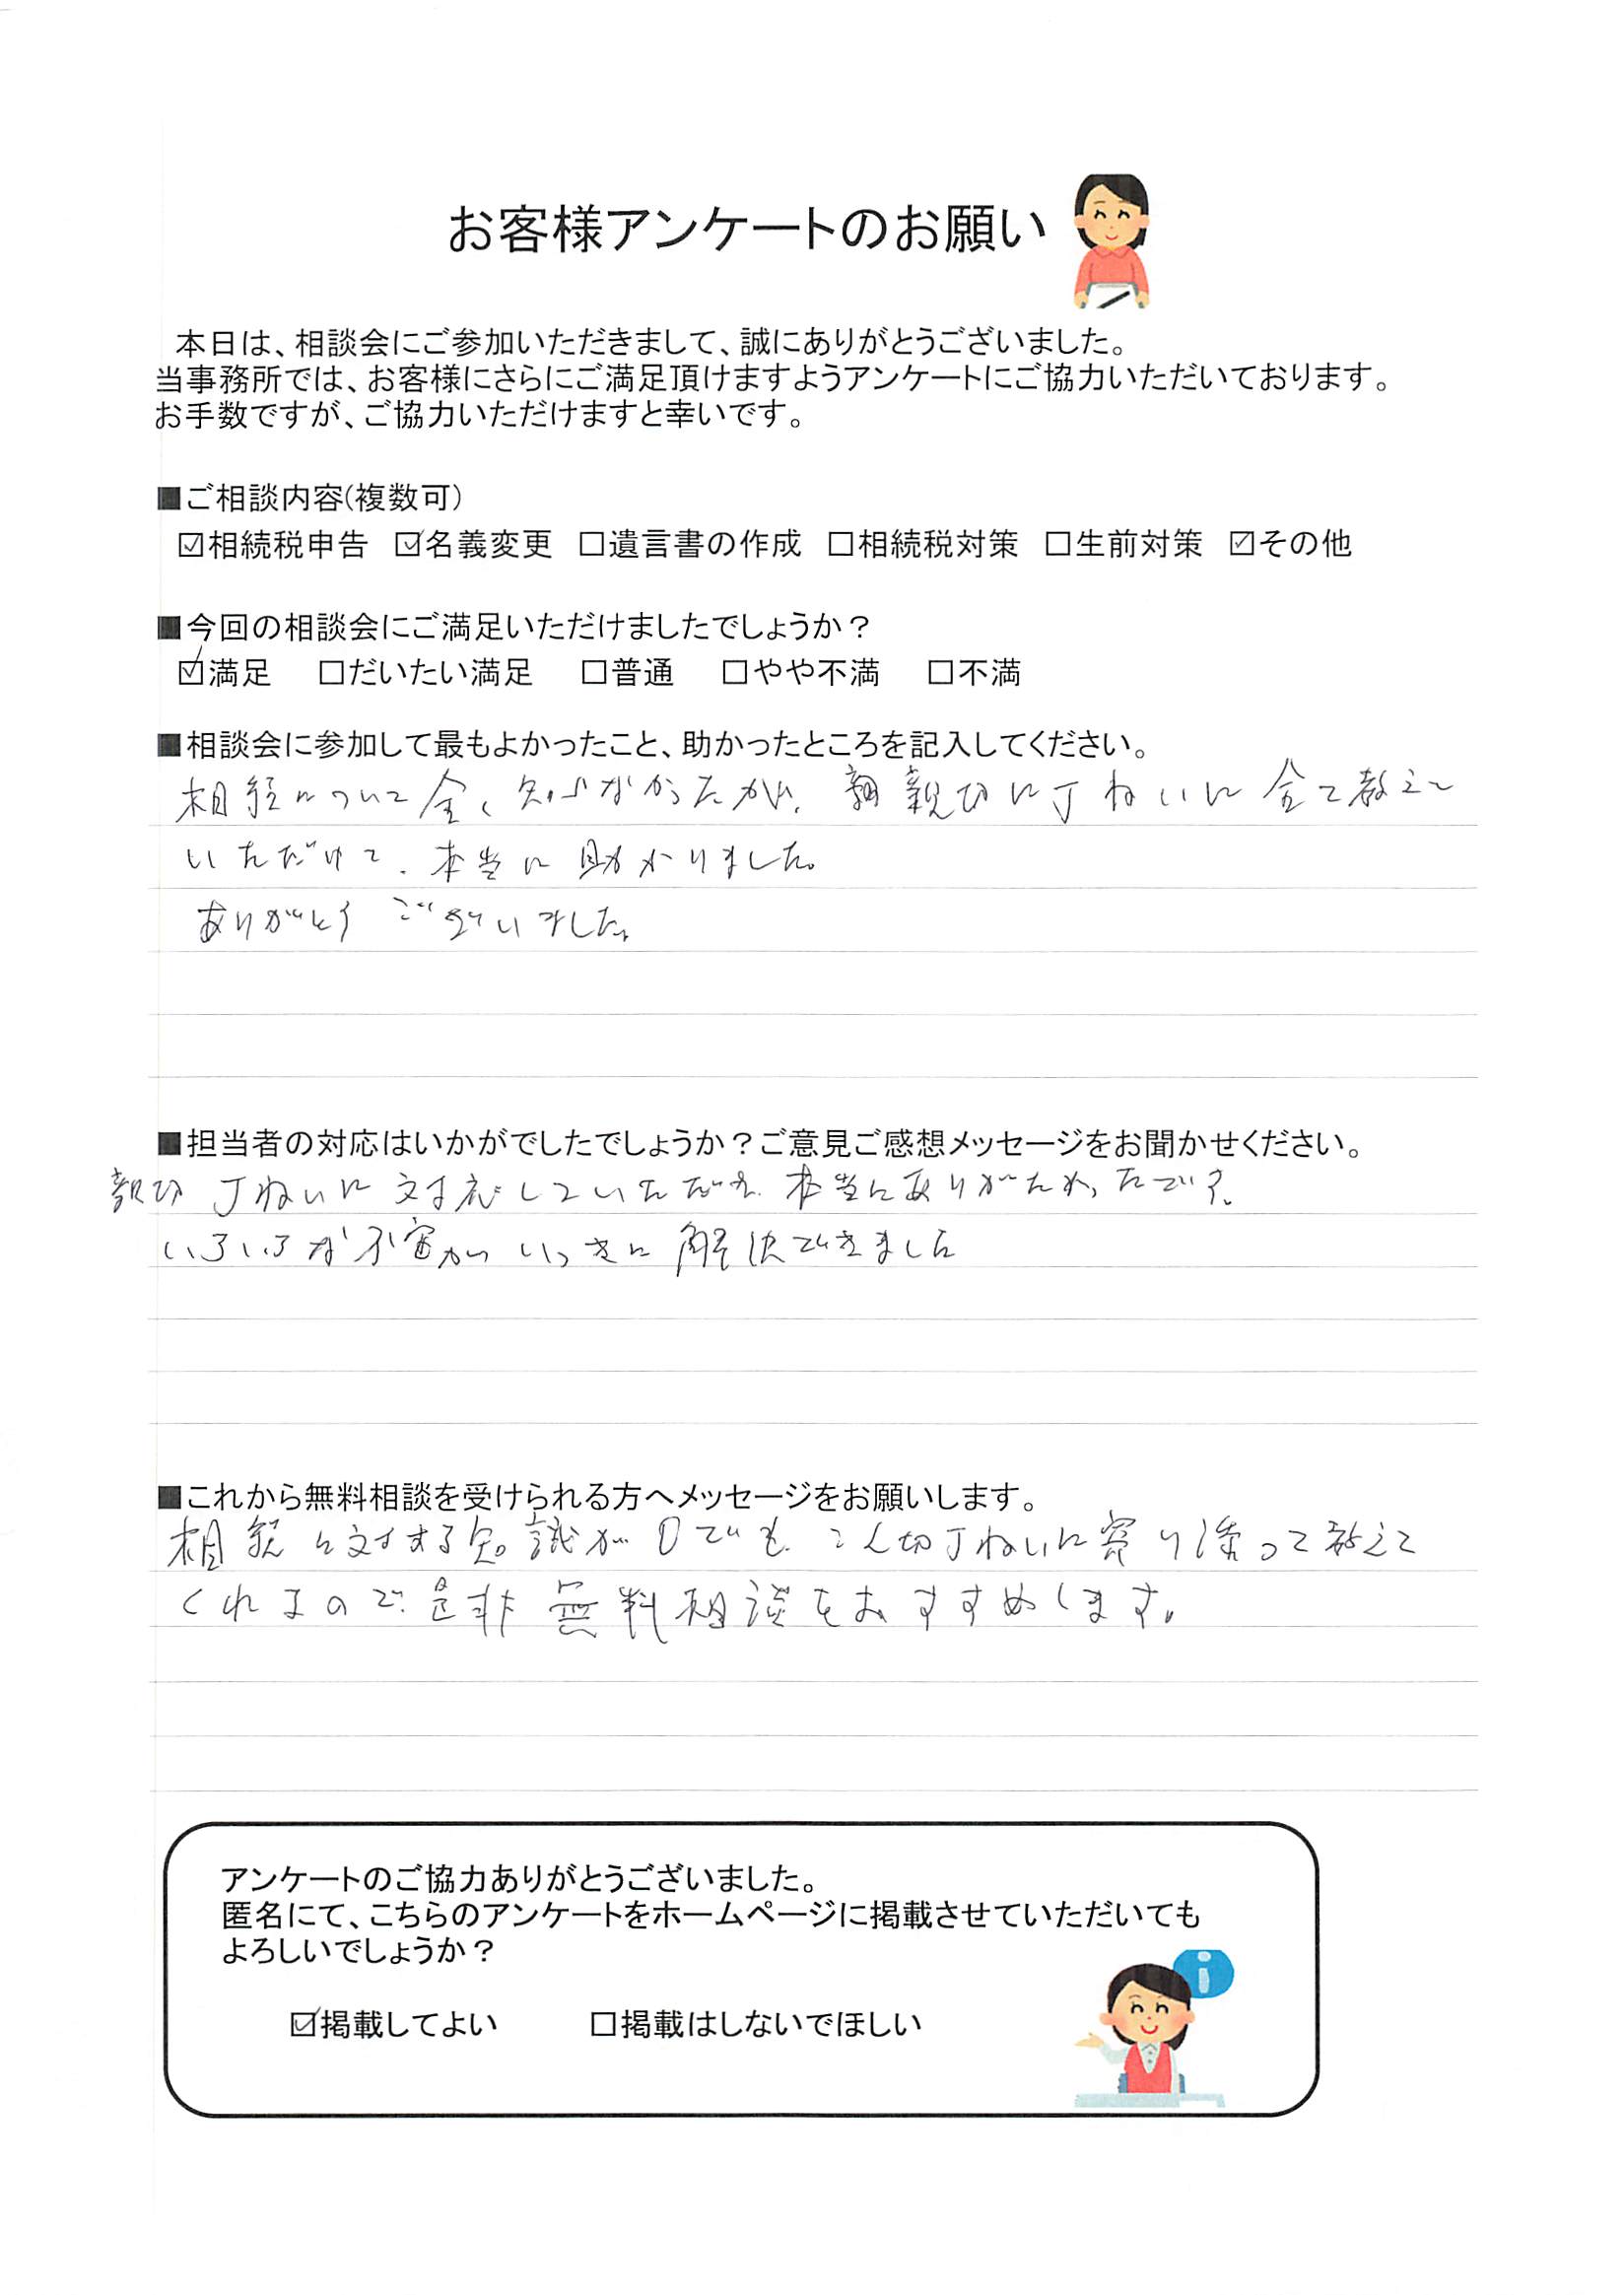 お客様アンケートのお願い
本日は、相談会にご参加いただきまして、誠にありがとうございました。
当事務所では、お客様にさらにご満足頂けますようアンケートにご協力いただいております。
お手数ですが、ご協力いただけますと幸いです。
■ご相談内容(複数可)
☑相続税申告 ☑名義変更 □遺言書の作成 □相続税対策 □生前対策 ☑その他
■今回の相談会にご満足いただけましたでしょうか？
☑満足 □だいたい満足 □普通 □やや不満 □不満
■相談会に参加して最もよかったこと、助かったところを記入してください。
相続について全く知らなかったが、親切に丁ねいに全て教えて
いただけて、本当に助かりました。
ありがとうございました。
■担当者の対応はいかがでしたでしょうか？ご意見ご感想メッセージをお聞かせください。
親切丁ねいに対応していただき、本当にありがたかったです。
いろいろな不審がいっきに解決できました
■これから無料相談を受けられる方へメッセージをお願いします。
相続に対する知識が0でも、切丁ねいに寄り添って教えて
くれるので、是非無料相談をおすすめします。
アンケートのご協力ありがとうございました。
匿名にて、こちらのアンケートをホームページに掲載させていただいても
よろしいでしょうか？
☑掲載してよい □掲載はしないでほしい